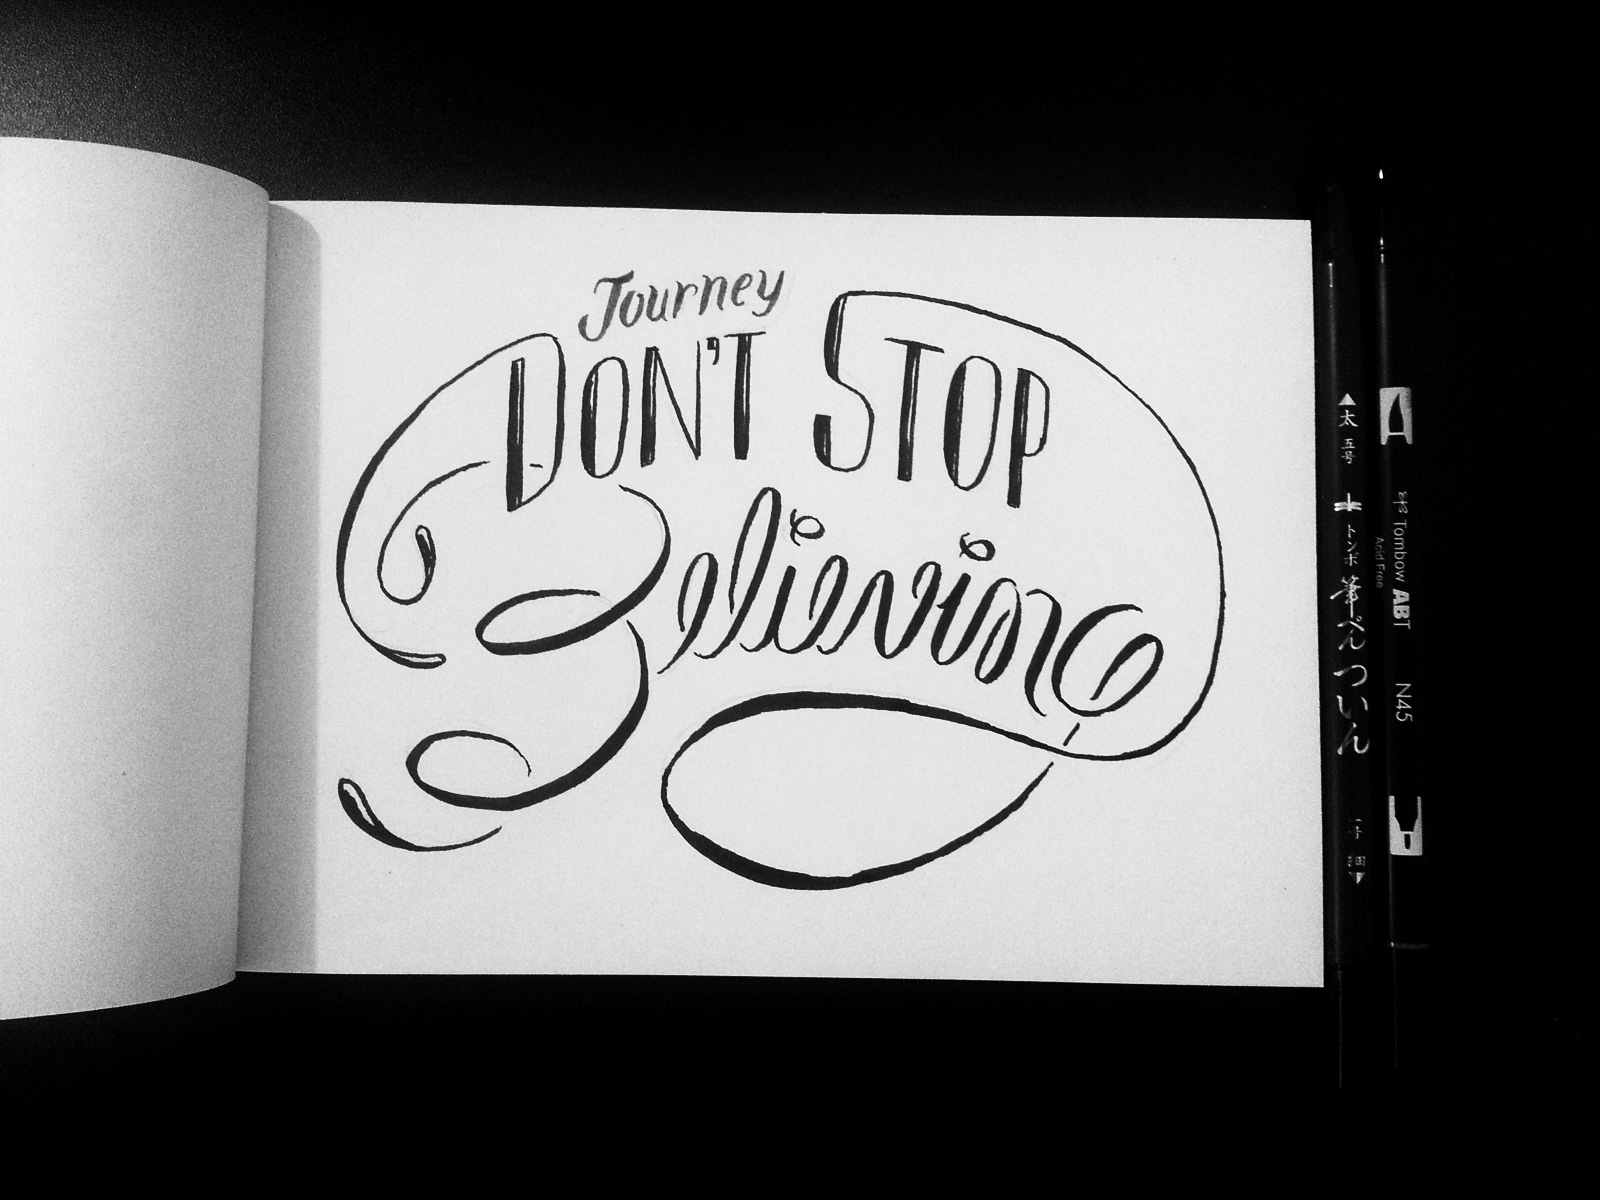 Journey
DON'T STOP
Believing
太 五号
トンボ 筆ぺん ついん
一号 細
Tombow ABT N45
Acid Free